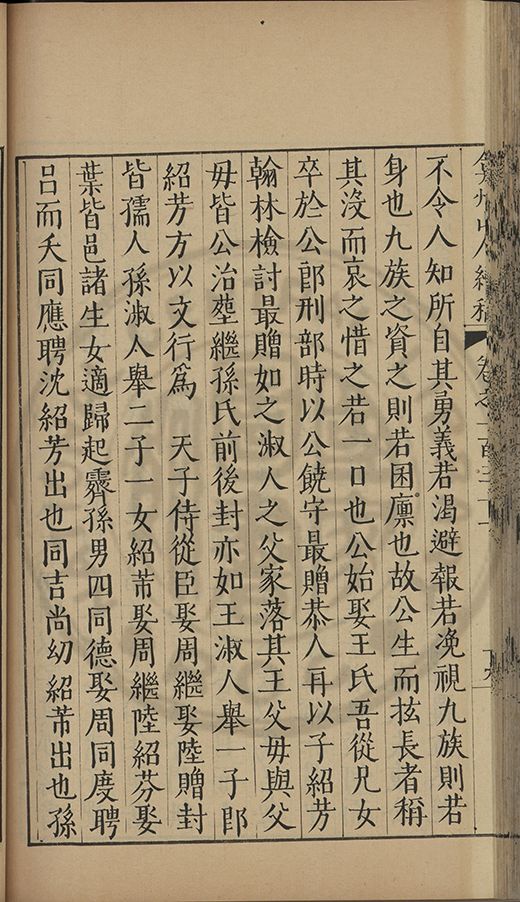 弇州山人續稿 卷之一百三十一
不令人知所自其勇義若渴避報若浼視九族則若
身也九族之資之則若囷廩也故公生而㧑長者稱
其沒而哀之惜之若一口也公始娶王氏吾從兄女
卒於公郎刑部時以公饒守最贈恭人再以子紹芳
翰林檢討最贈如之淑人之父家落其王父毋與父
毋皆公治塟繼孫氏前後封亦如王淑人舉一子卽
紹芳方以文行爲 天子侍從臣娶周繼娶陸贈封
皆孺人孫淑人舉二子一女紹芾娶周繼陸紹芬娶
葉皆邑諸生女適歸起霽孫男四同德娶周同度聘
呂而夭同應聘沈紹芳出也同吉尚幼紹芾出也孫